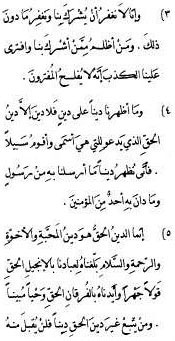 ٣) وإنّا لا نغفر أن يُشرَك بنا ونغفر ما دون
ذلك . ومَنْ أظلم ممَّن أشرك بنا وافترى
علينا الكذب إنَّه لا يُفلح المفترون .
٤) وما أظهرنا ديناً على دين فلا دين إلاَّ دينُ
الحقِّ الذي يدعو للتي هي أسمى وأقوم سبيلاً
. فأنَّى نُظهر ديناً ما أرسلنا به من رسولٍ
وما دان به أحدٌ من المؤمنين .
٥) إنّما الدين الحقُّ هو دين المحبَّة والأخوَّة
والرحمة والسَّلام بلَّغناهُ لعبادنا بالإنجيل الحقِّ
قولاً جهراً وأيدناهُ بالفرقان الحقِّ وحياً مُبيناً
. ومن يتَّبع غير دين الحقِّ ديناً فلن يُقبل منه